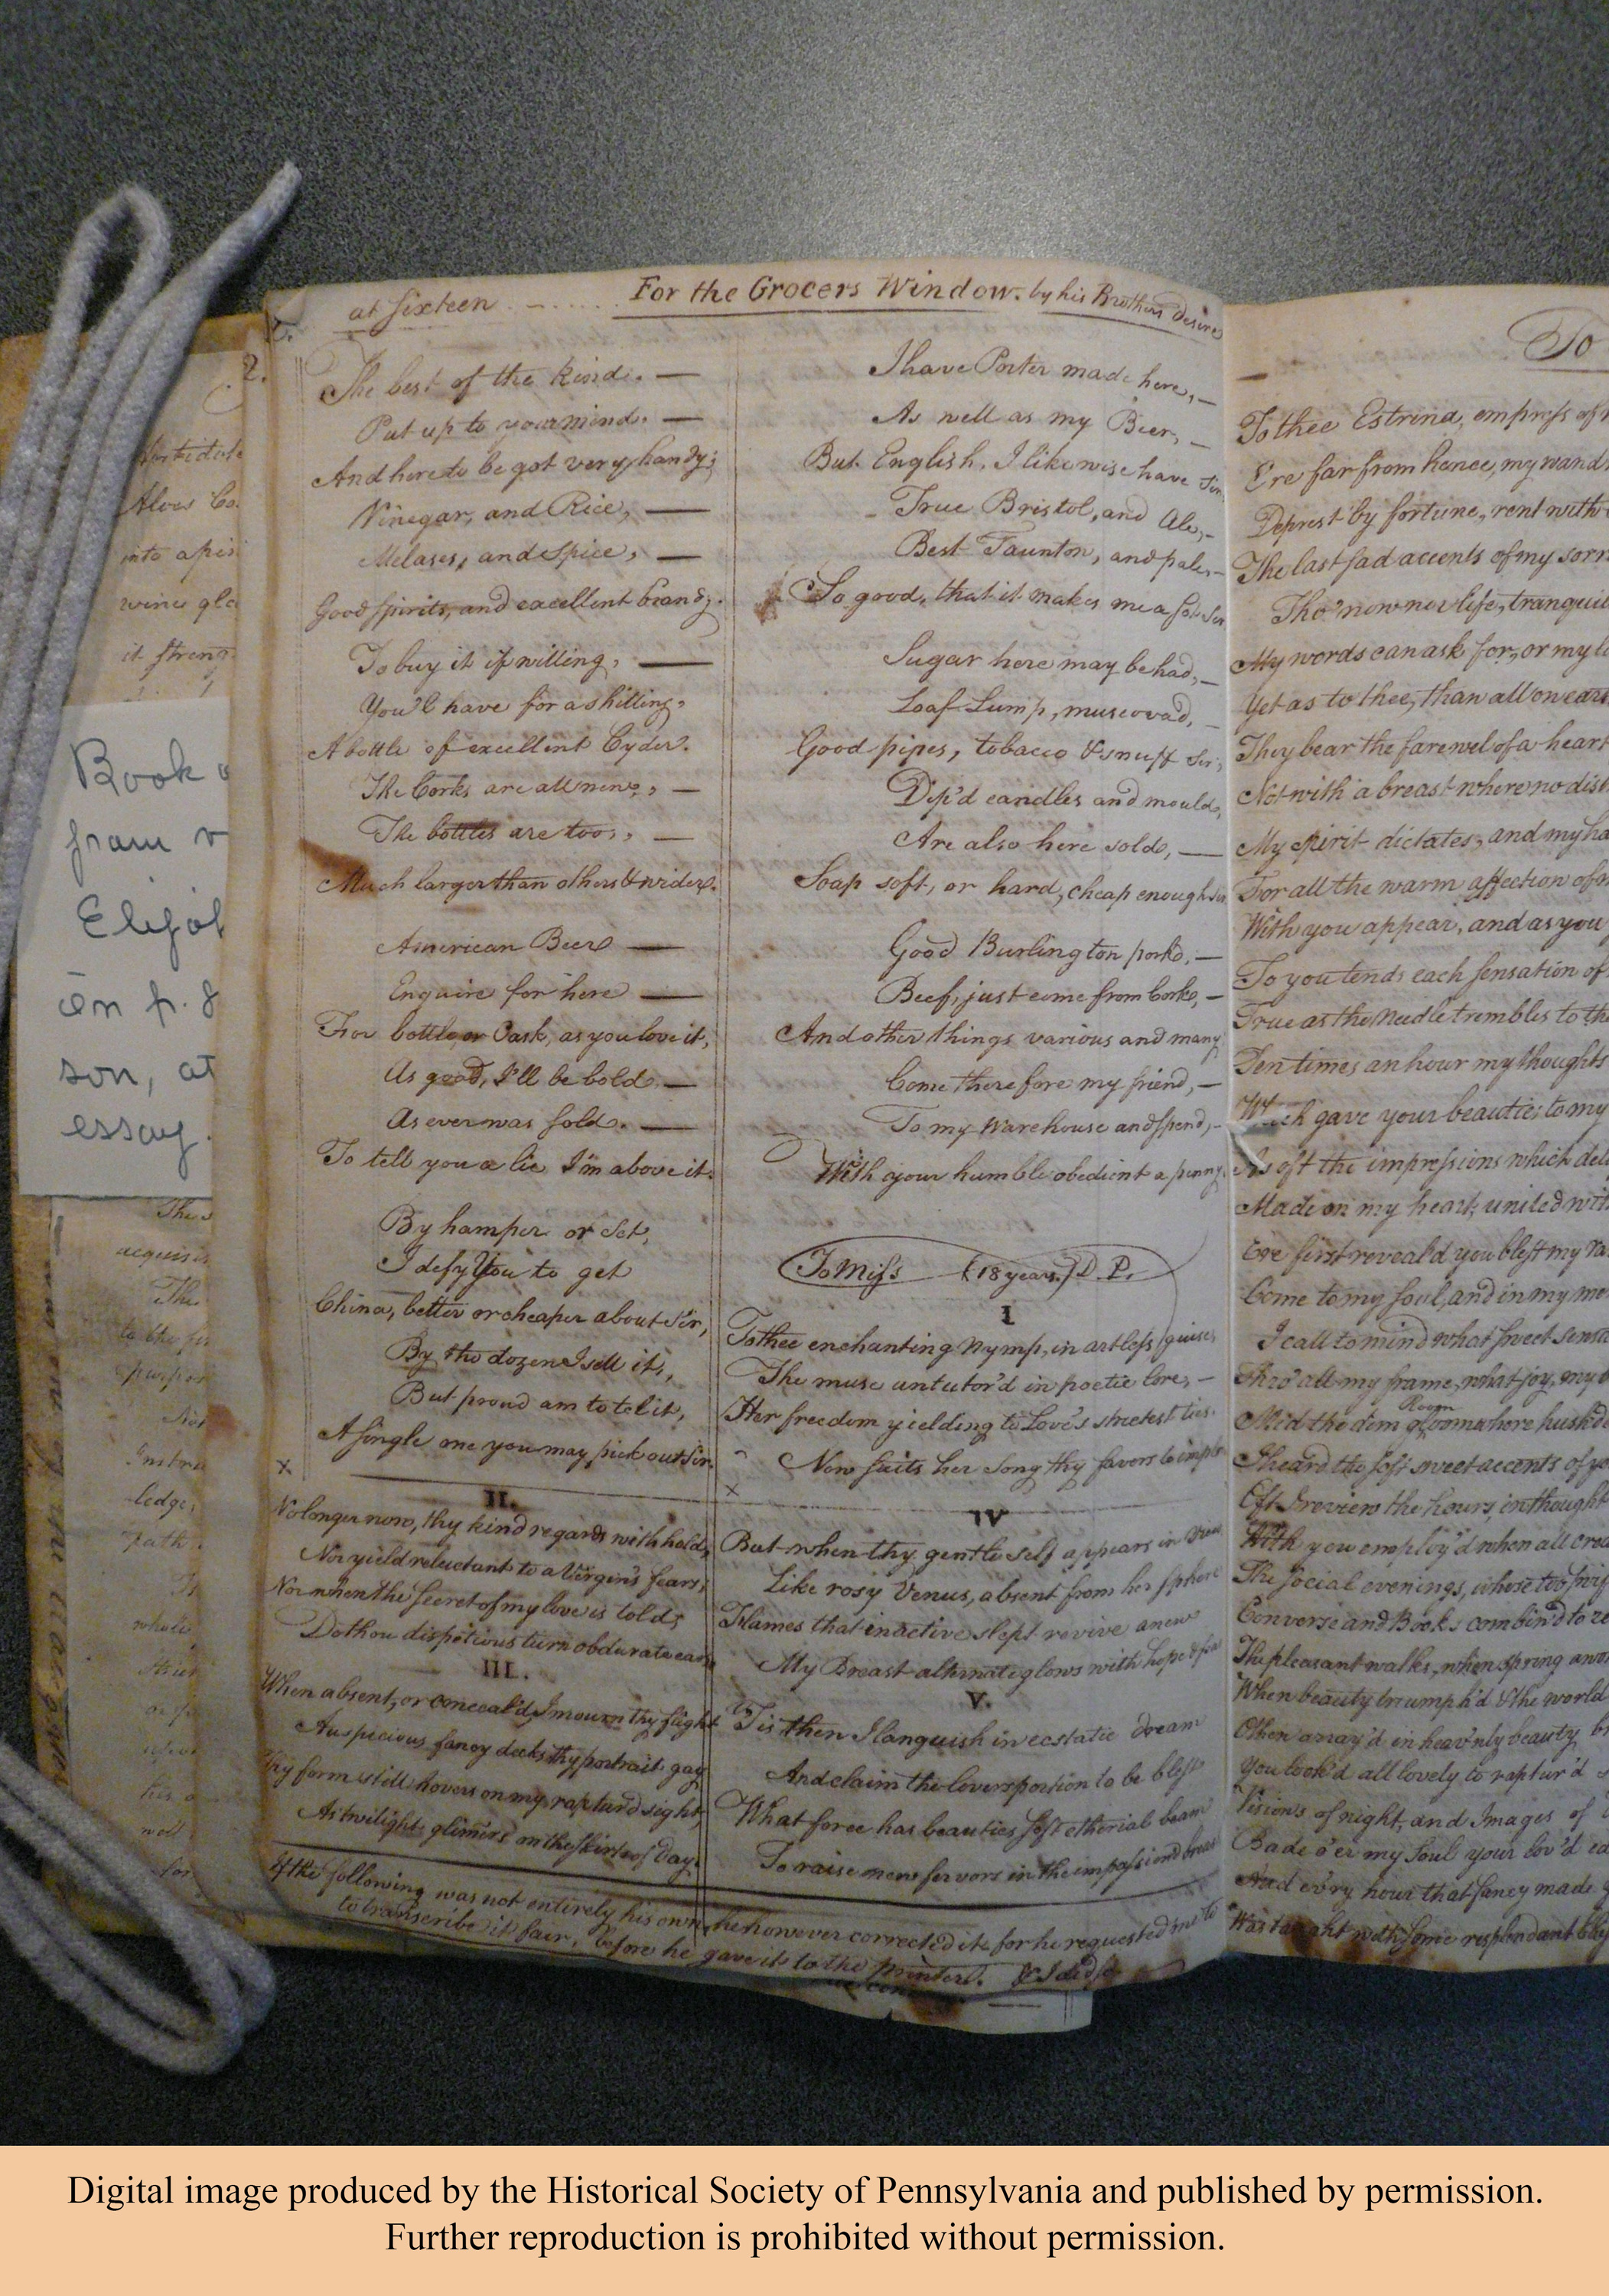 2.
at sixteen - - ..... For the Grocers Window. by his Brothers desire
The best of the kind. —
Put up to your mind. —
And here to be got very handy;
Vinegar, and Rice, —
Melases, and Spice, —
Good spirits, and excellent brandy.
To buy it if willing, —
You'l have for a shilling,
A bottle of excellent Cyder.
The Corks are all new, —
The bottles are too, —
Much larger than others & wider.
American Beer —
Enquire for here —
For bottle or Cask, as you love it,
As good, I'll be bold —
As ever was sold. —
To tell you a lie I'm above it.
By hamper or Set,
I defy You to get
China, better or cheaper about Sir,
By the dozen I sell it,
But proud am to tel it,
A single one you may pick out Sir.
I have Porter made here, —
As well as my Beer, —
But English, I likewise have Sir,
True Bristol, and Ale, —
Best Taunton, and pale, —
So good, that it makes me a sot Sir
Sugar here may be had, —
Loaf Lump, muscovad, —
Good pipes, tobacco & snuff Sir,
Dip'd candles and mould,
Are also here sold, —
Soap soft, or hard, cheap enough Sir
Good Burlington pork, —
Beef, just come from Cork, —
And other things various and many
Come therefore my friend, —
To my Warehouse and spend, —
With your humble obedient a penny.
To Miss (18 years.) D. P.
I
To thee enchanting Nymp, in artless guise,
The muse untutor'd in poetic lore, —
Her freedom yielding to Love's strictest ties.
Now suits her song thy favors to implore
x
x
II.
No longer now, thy kind regards withhold,
Nor yield reluctant to a Virgin's fears,
Nor when the secret of my love is told,
Do thou dispitious turn obdurate ears
III.
When absent, or conceal'd, I mourn thy flight
Auspicious fancy decks thy portrait gay
Thy form still hovers on my raptur'd sight,
As twilight glimers on the skirts of Day.
IV
But when thy gentle self appears in view
Like rosy Venus, absent from her sphere
Flames that inactive slept revive anew
My Breast alternate glows with hope & fear
V.
Tis then I languish in ecstatic dream
And claim the lovers portion to be blest
What force has beauties soft etherial beam
To raise new fervors in the impassiond breast
If the following was not entirely his own, he however corrected it for he requested me to
to transcribe it fair, before he gave it to the printer. & I did so
To
To thee Estrina, empress of
E're far from hence, my wand
Deprest by fortune, rent with
The last sad accents of my sorr
Tho' now nor life, tranquil
My words can ask for, or my
Yet as to thee, than all on ear
They bear the farewel of a heart
Not with a breast where no dis
My spirit dictates, and my ha
For all the warm affection of
With you appear, and as you
To you tends each sensation of
True as the Needle trembles to the
Ten times an hour my thoughts
gave your beauties to my
As oft the impressions which del
Made on my heart, united with
Ere first reveal'd you blest my ra
Come to my soul, and in my me
I call to mind what sweet sensa
Thro' all my frame, what joy, my
Room
Mid the dim gloom where hush'd
I heard the soft sweet accents of yo
Oft I review the hours, in thought
With you employ'd when all crea
The social evenings, whose too swif
Converse and Books combin'd to re
The pleasant walks, when spring
When beauty triumph'd & the world
Often array'd in heav'nly beauty
You look'd all lovely to raptur'd
Visions of night, and Images of
Bade o'er my soul your lov'd
And ev'ry hour that fancy made
Was taught with some resplendant
Book
from
Elijah
on p. 8
son, at
essay.
Digital image produced by the Historical Society of Pennsylvania and published by permission.
Further reproduction is prohibited without permission.